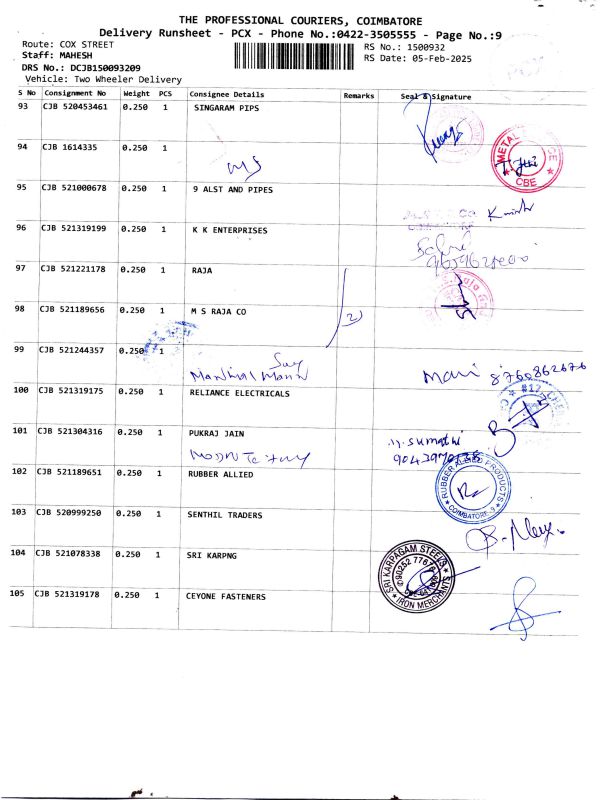 THE PROFESSIONAL COURIERS, COIMBATORE
Delivery Runsheet - PCX - Phone No.:0422-3505555 - Page No.:9
Route: COX STREET
RS No.: 1500932
Staff: MAHESH
RS Date: 05-Feb-2025
DRS No.: DCJB150093209
Vehicle: Two Wheeler Delivery
S No Consignment No Weight PCS Consignee Details Remarks Seal & Signature
93 CJB 520453461 0.250 1 SINGARAM PIPS
94 CJB 1614335 0.250 1
MS
METAL CBE
95 CJB 521000678 0.250 1 9 ALST AND PIPES
96 CJB 521319199 0.250 1 K K ENTERPRISES
97 CJB 521221178 0.250 1 RAJA
98 CJB 521189656 0.250 1 M S RAJA CO
2
99 CJB 521244357 0.250 1
Mani 8760862676
100 CJB 521319175 0.250 1 RELIANCE ELECTRICALS
101 CJB 521304316 0.250 1 PUKRAJ JAIN
Sumathi
102 CJB 521189651 0.250 1 RUBBER ALLIED
RUBBER ALLIED PRODUCTS COIMBATORE-9
103 CJB 520999250 0.250 1 SENTHIL TRADERS
104 CJB 521078338 0.250 1 SRI KARPNG
SRI KARPAGAM STEELS IRON MERCHANTS
105 CJB 521319178 0.250 1 CEYONE FASTENERS